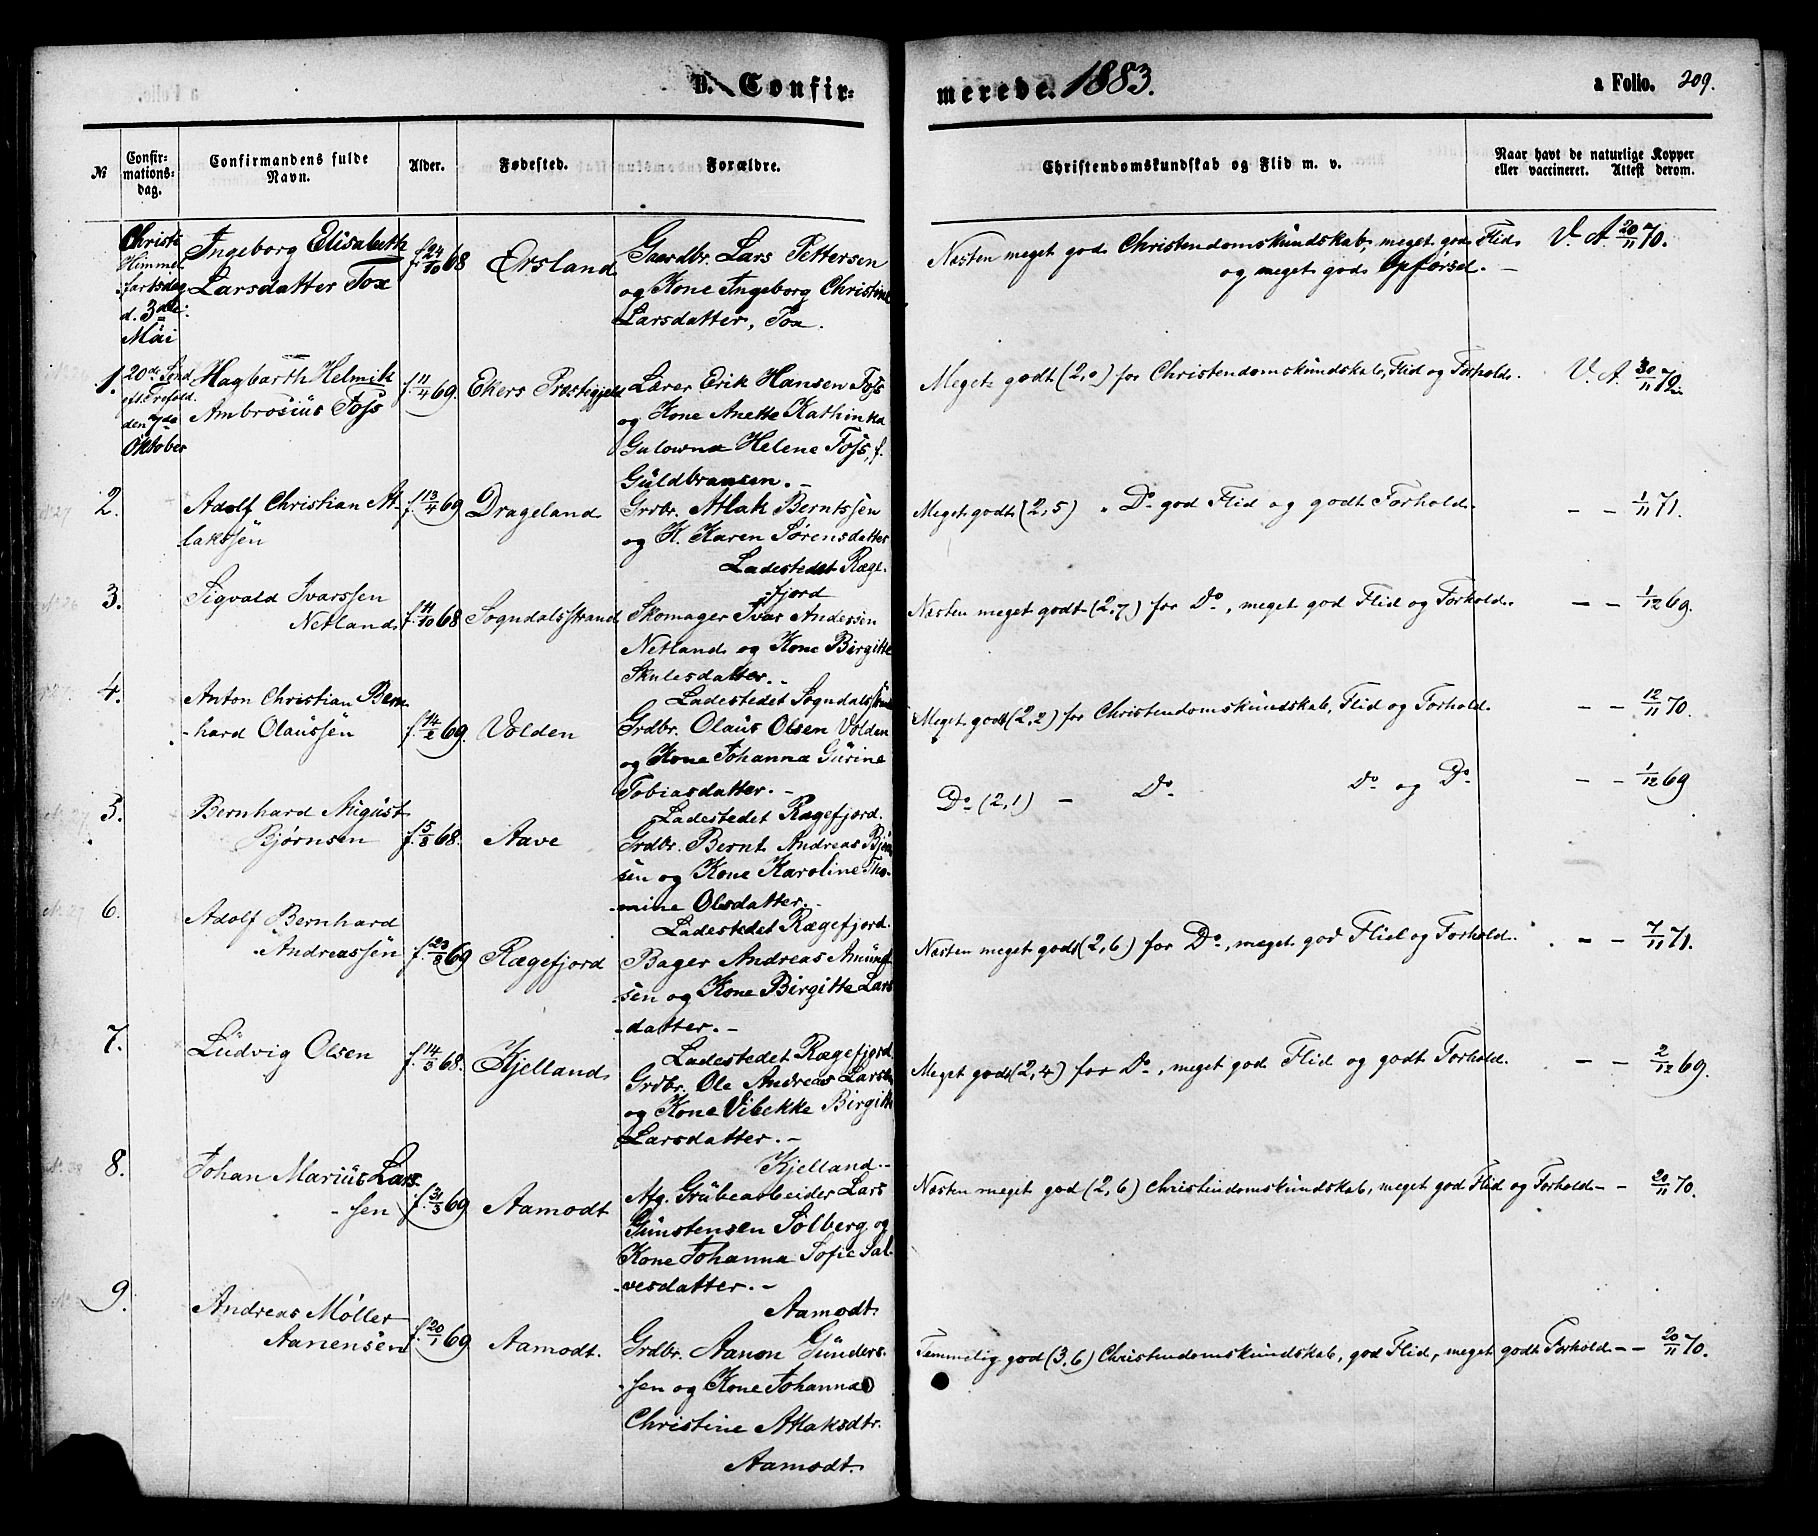 B. Confirmerede. 1883. a Folio. 209.
№ Confirmationsdag. Confirmandens fulde Navn. Alder. Fødested. Forældre. Christendomskundskab og Flid m. v. Naar havt de naturlige Kopper eller vaccineret. Attest derom.
Christi Himmelfartsdag d. 3die Mai
Ingeborg Elisabeth
Larsdatter Tox
f. 24/10 68
Ørsland
Gaardbr. Lars Pettersen
og Kone Ingeborg Christine
Larsdatter, Tox.
Næsten meget god Christendomskundskab, meget god Flid
og meget god Opførsel. –
V. A. 20/11 70.
1.
20de Sønd.
efter
den 7de
Oktober
Hagbarth Helmik
Ambrosius Foss
f. 11/4 69.
Ekers Præstegjeld
Lærer Erik Hansen Foss
og Kone Anette Kathinka
Galowna Helene Foss, f.
Guldbransen. –
Meget godt (2,0) for Christendomskundskab, Flid og Forhold.
V. A. 30/11 72.
2.
Adolf Christian At-
lakssen
f. 13/4 69
Drageland
Grdbr. Atlak Berntssen
og K. Karen Sørensdatter
Ladestedet Ræge-
fjord
Meget godt (2,5) " Do god Flid og godt Forhold.
– – 1/11 71.
3.
Sigvald Ivarssen
Netland
f. 11/10 68
Sogndalsstrand
Skomager Ivar Andersen
Netland og Kone Birgitte
Skulesdatter. –
Ladestedet Sogndalsstrand
Næsten meget godt (2,7) for Do, meget god Flid og Forhold.
– – 1/12 69.
4.
Anton Christian Bern-
hard Olaussen
f. 14/2 69.
Volden
Grdbr. Olaus Olsen Volden
og Kone Johanna Gurine
Tobiasdatter. –
Ladestedet Rægefjord.
Meget godt (2,2) for Christendomskundskab, Flid og Forhold.
– – 12/11 70.
5.
Bernhard August
Bjørnsen
f. 5/8 68.
Aave
Grdbr. Bernt Andreas Bjørn-
sen og Kone Karoline Tho-
mine Olsdatter. –
Ladestedet Rægefjord.
Do (2,1) – Do Do og Do
– – 1/12 69
6.
Adolf Bernhard
Andreassen
f. 23/3 69
Rægefjord
Bager Andreas Amund-
sen og Kone Birgitte Lars-
datter. –
Ladestedet Rægefjord.
Næsten meget godt (2,6) for Do, meget god Flid og Forhold.
– – 7/11 71.
7.
Ludvig Olsen
f. 14/3 68.
Kjelland
Grdbr. Ole Andreas Larsen
og Kone Vibekke Birgitte
Larsdatter. –
Kjelland –
Meget godt (2,4) for Do, meget god Flid og godt Forhold.
– – 2/12 69.
8.
Johan Marius Lars-
sen
f. 31/3 69
Aamodt
Afg. Grubearbeider Lars
Gunstensen Solberg og
Kone Johanna Sofie Sal-
vesdatter. –
Aamodt
Næsten meget god (2,6) Christendomskundskab, meget god Flid og Forhold
– – 20/11 70.
9.
Andreas Møller
Aanensen
f. 20/1 69
Aamodt.
Grdbr. Aanon Gunders-
sen og Kone Johanna
Christine Atlaksdtr.
Aamodt.
Temmelig god (3,6) Christendomskundskab, god Flid, meget godt Forhold
– – 20/11 70.